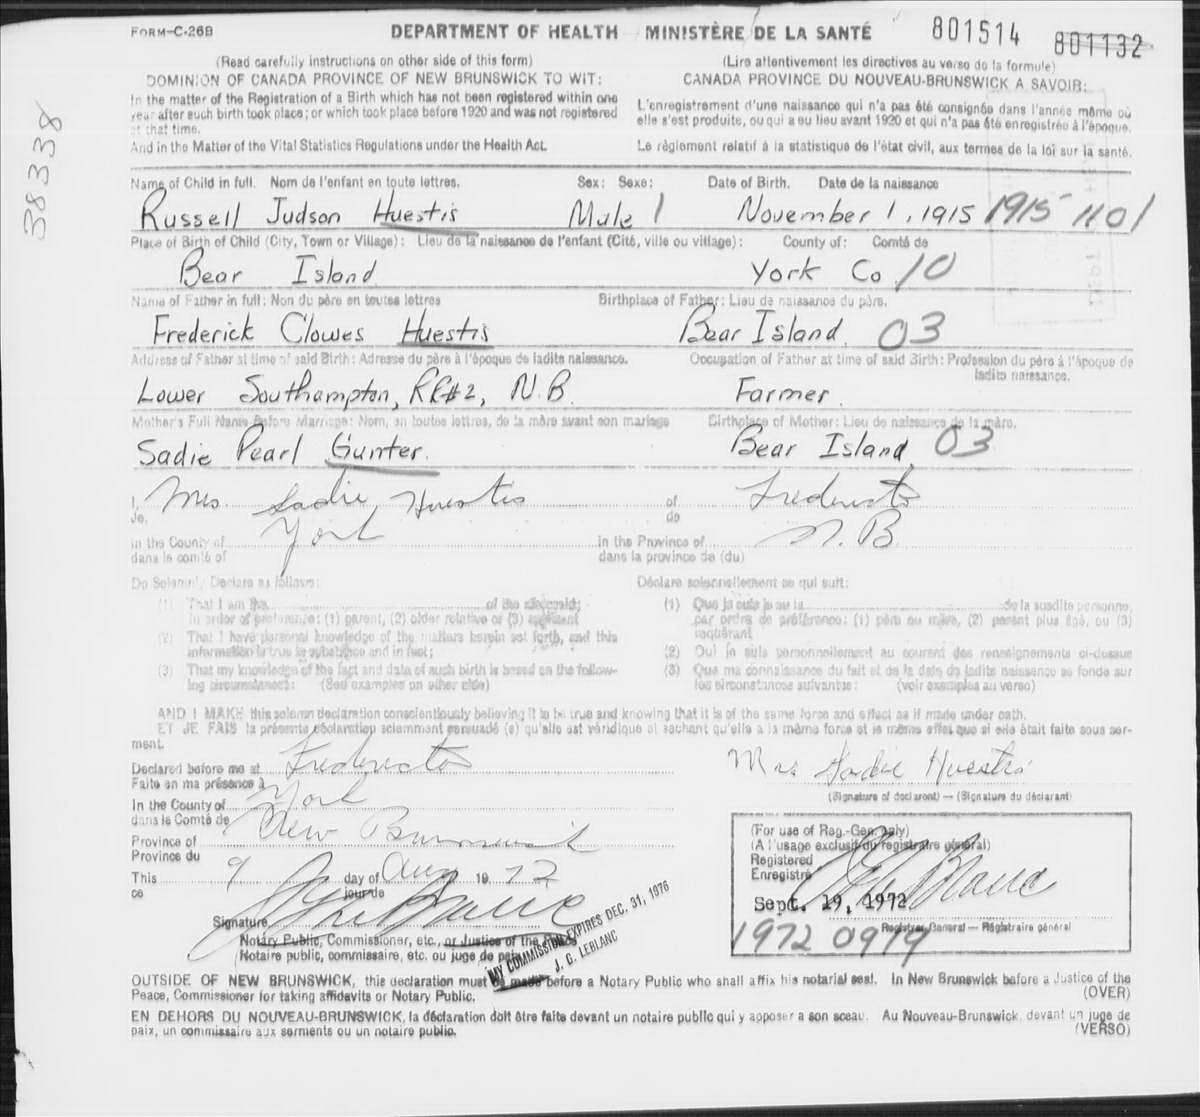 FORM-C-26B
DEPARTMENT OF HEALTH MINISTÈRE DE LA SANTÉ
801514 801132
(Read carefully instructions on other side of this form)
(Lire attentivement les directives au verso de la formule)
DOMINION OF CANADA PROVINCE OF NEW BRUNSWICK TO WIT:
CANADA PROVINCE DU NOUVEAU-BRUNSWICK A SAVOIR:
In the matter of the Registration of a Birth which has not been registered within one
year after such birth took place; or which took place before 1920 and was not registered
at that time.
And in the Matter of the Vital Statistics Regulations under the Health Act.
L'enregistrement d'une naissance qui n'a pas été consignée dans l'année même où
elle s'est produite, ou qui a eu lieu avant 1920 et qui n'a pas été enregistrée à l'époque.
Le règlement relatif à la statistique de l'état civil, aux termes de la loi sur la santé.
38338
Name of Child in full. Nom de l'enfant en toute lettres. Sex: Sexe: Date of Birth. Date de la naissance
Russell Judson Huestis Male 1 November 1, 1915 1915 1101
Place of Birth of Child (City, Town or Village): Lieu de la naissance de l'enfant (Cité, ville ou village): County of: Comté de
Bear Island York Co 10
Name of Father in full: Non du père en toutes lettres Birthplace of Father: Lieu de naissance du père.
Frederick Clowes Huestis Bear Island 03
Address of Father at time of said Birth: Adresse du père à l'époque de ladite naissance. Occupation of Father at time of said Birth: Profession du père à l'époque de
ladite naissance.
Lower Southampton, RR#2, N.B. Farmer.
Mother's Full Name Before Marriage: Nom, en toutes lettres, de la mère avant son mariage Birthplace of Mother: Lieu de naissance de la mère.
Sadie Pearl Gunter. Bear Island 03
I, Mrs. Sadie Huestis of Fredericton
Je, de
in the County of York in the Province of N.B.
dans le comté of dans la province de (du)
Do Solemnly Declare as follows: Déclare solennellement ce qui suit:
(1) That I am the of the aforesaid;
in order of preference: (1) parent, (2) older relative or (3) applicant
(2) That I have personal knowledge of the matters herein set forth, and this
information is true in substance and in fact;
(3) That my knowledge of the fact and date of such birth is based on the follow-
ing circumstances: (See examples on other side)
(1) Que je suis le ou la de la susdite personne,
par ordre de préférence: (1) père ou mère, (2) parent plus âgé, ou (3)
requérant
(2) Qui je suis personnellement au courant des renseignements ci-dessus
(3) Que ma connaissance du fait et de la date de ladite naissance se fonde sur
les circonstances suivantes: (voir exemples au verso)
AND I MAKE this solemn declaration conscientiously believing it to be true and knowing that it is of the same force and effect as if made under oath.
ET JE FAIS la présente déclaration sciemment persuadé (e) qu'elle est véridique et sachant qu'elle a la même force et le même effet que si elle était faite sous ser-
ment.
Declared before me at Fredericton
Faite en ma présence à
In the County of York
dans le Comté de
Province of New Brunswick
Province du
This 9 day of Aug 19 72
ce jour de
Signature
Notary Public, Commissioner, etc., or Justice of the Peace
(Notaire public, commissaire, etc. ou juge de paix
MY COMMISSION EXPIRES DEC. 31, 1976
J. C. LEBLANC
Mrs Sadie Huestis
(Signature of declarant) — (Signature du déclarant)
(For use of Reg.-Gen. only)
(A l'usage exclusif du registraire général)
Registered
Enregistré
Sept. 19, 1972
Registrar General — Régistraire général
1972 0919
OUTSIDE OF NEW BRUNSWICK, this declaration must be made before a Notary Public who shall affix his notarial seal. In New Brunswick before a Justice of the
Peace, Commissioner for taking affidavits or Notary Public.
(OVER)
EN DEHORS DU NOUVEAU-BRUNSWICK, la déclaration doit être faite devant un notaire public qui y apposer a son sceau. Au Nouveau-Brunswick, devant un juge de
paix, un commissaire aux serments ou un notaire public.
(VERSO)